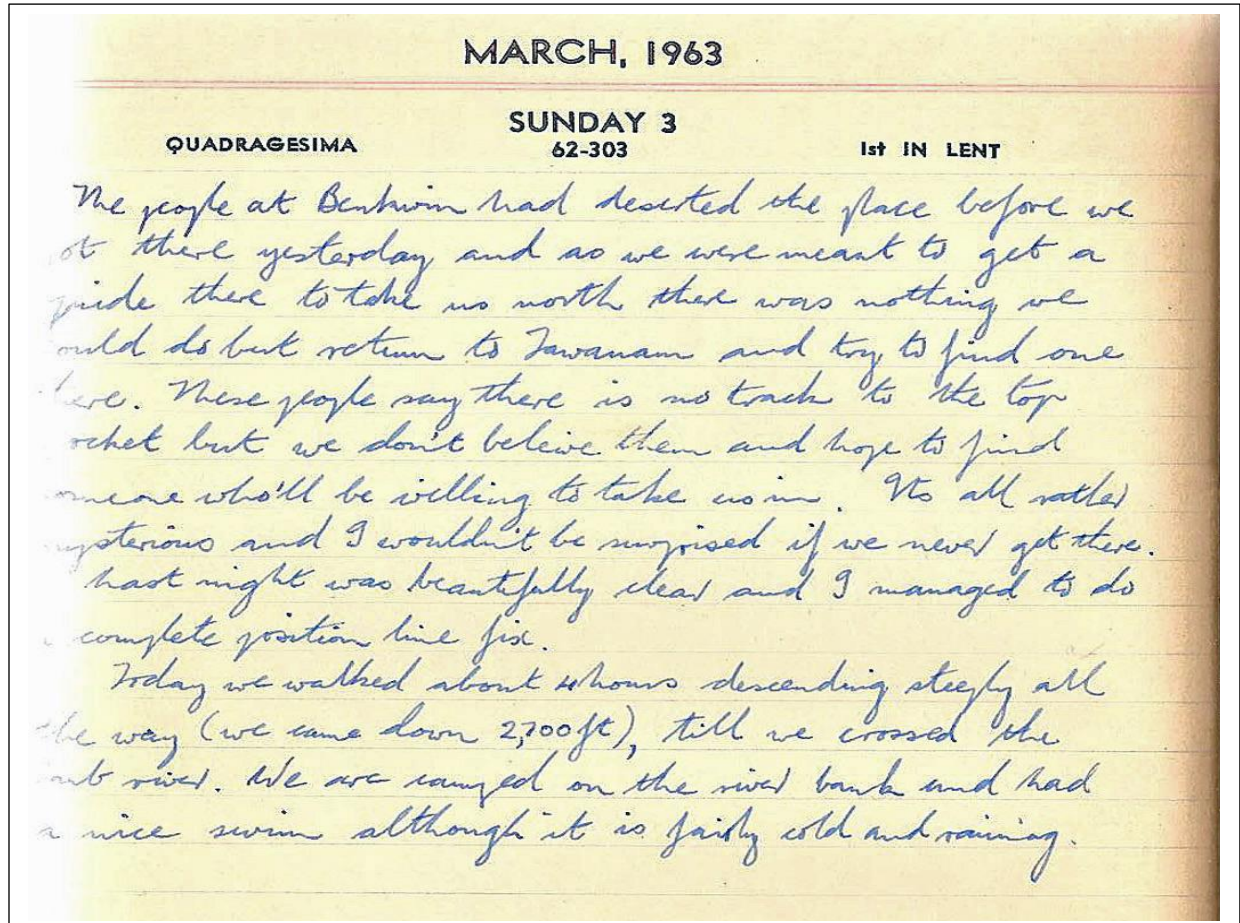 MARCH, 1963
SUNDAY 3
QUADRAGESIMA 62-303 1st IN LENT
The people at Benkwin had deserted the place before we
ot there yesterday and as we were meant to get a
guide there to take us north there was nothing we
ould do but return to Tawanam and try to find one
here. These people say there is no track to the top
ocket but we don't beleive them and hope to find
omeone who'll be willing to take us in. Its all rather
mysterious and I wouldn't be surprised if we never get there.
Last night was beautifully clear and I managed to do
complete position line fix.
Today we walked about 4 hours descending steeply all
the way (we came down 2,700ft), till we crossed the
river. We are camped on the river bank and had
a nice swim although it is fairly cold and raining.